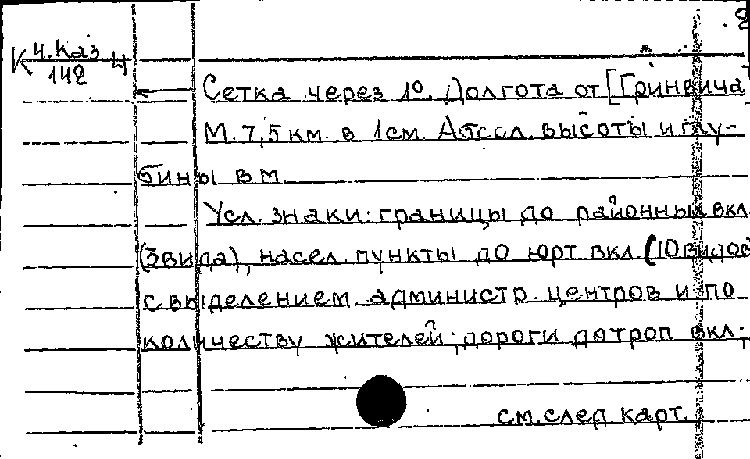 К 4.Каз 4
142
Сетка через 1°. Долгота от [Гринвича]
М. 7,5 км. в 1 см. Абсол. высоты и глу-
бины в м.
Усл. знаки: границы до районных вкл.
(3 вида), насел. пункты до юрт вкл. (10 видов
с выделением администр. центров и по
количеству жителей; дороги до троп вкл.;
см. след карт.